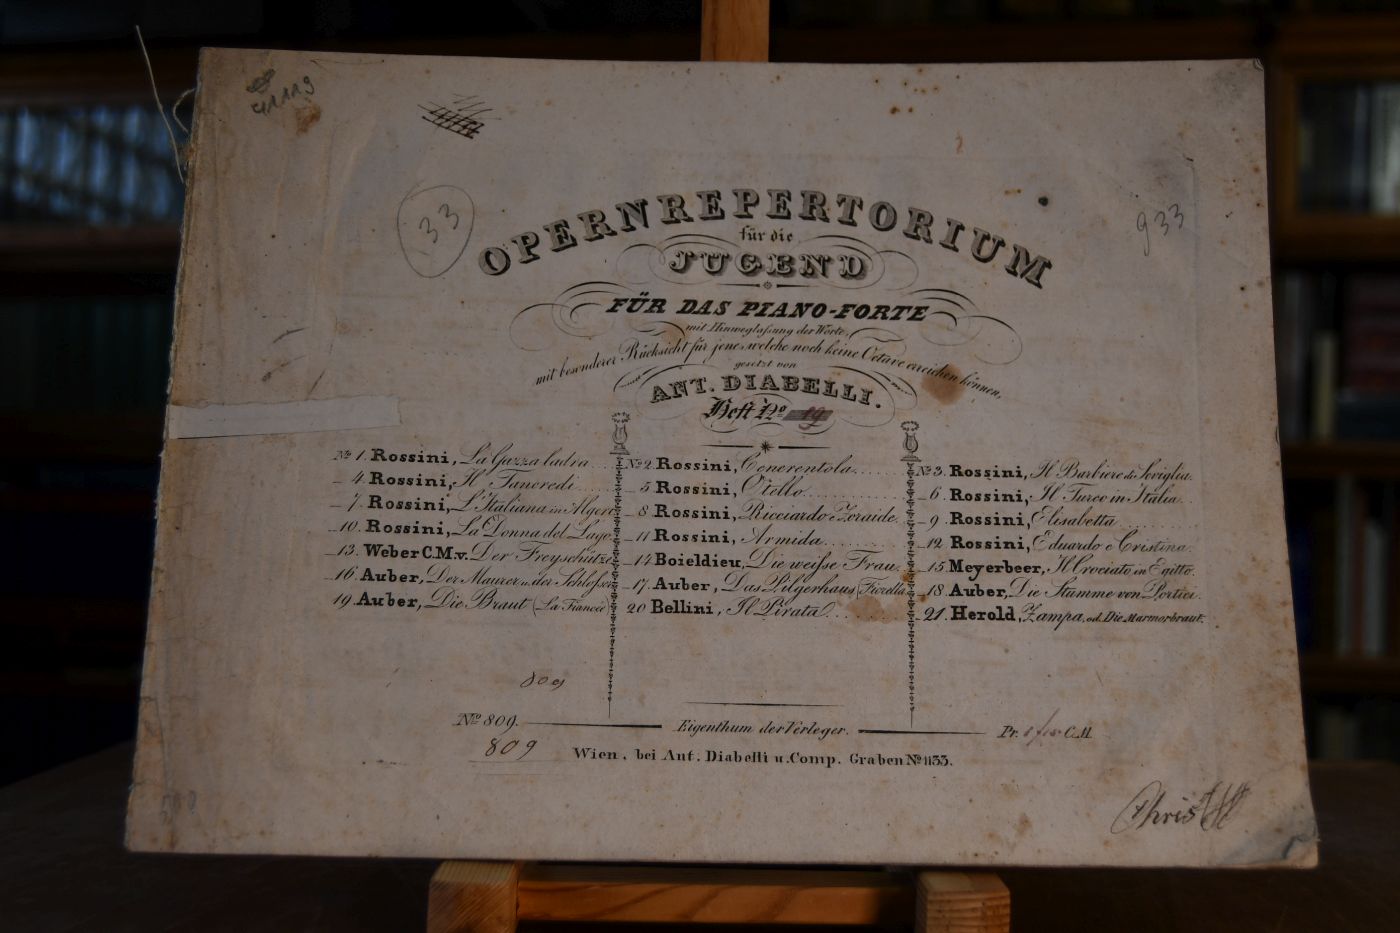 41119
33
933
OPERNREPERTORIUM
für die
JUGEND
FÜR DAS PIANO-FORTE
mit Hinweglaßung der Worte,
mit besonderer Rücksicht für jene, welche noch keine Octave erreichen können,
gesetzt von
ANT. DIABELLI.
Heft No. 19
No 1. Rossini, La Gazza ladra .... No 2. Rossini, Cenerentola ...... No 3. Rossini, Il Barbiere di Seviglia.
4. Rossini, Il Tancredi ..... 5. Rossini, Otello .......... 6. Rossini, Il Turco in Italia ..
7. Rossini, L'Italiana in Algeri 8. Rossini, Ricciardo e Zoraide. 9. Rossini, Elisabetta .......
10. Rossini, La Donna del Lago 11. Rossini, Armida ........ 12. Rossini, Eduardo e Cristina.
13. Weber C.M.v. Der Freyschütze 14. Boieldieu, Die weiße Frau. 15. Meyerbeer, Il Crociato in Egitto.
16. Auber, Der Maurer u. der Schloßer 17. Auber, Das Pilgerhaus (Fiorella) 18. Auber, Die Stumme von Portici.
19. Auber, Die Braut (La Fiancée) 20 Bellini, Il Pirata ....... 21. Herold, Zampa, od. Die Marmorbraut.
809
No 809. Eigenthum der Verleger. Pr. C.M.
809
Wien, bei Ant. Diabelli u. Comp. Graben No 1133.